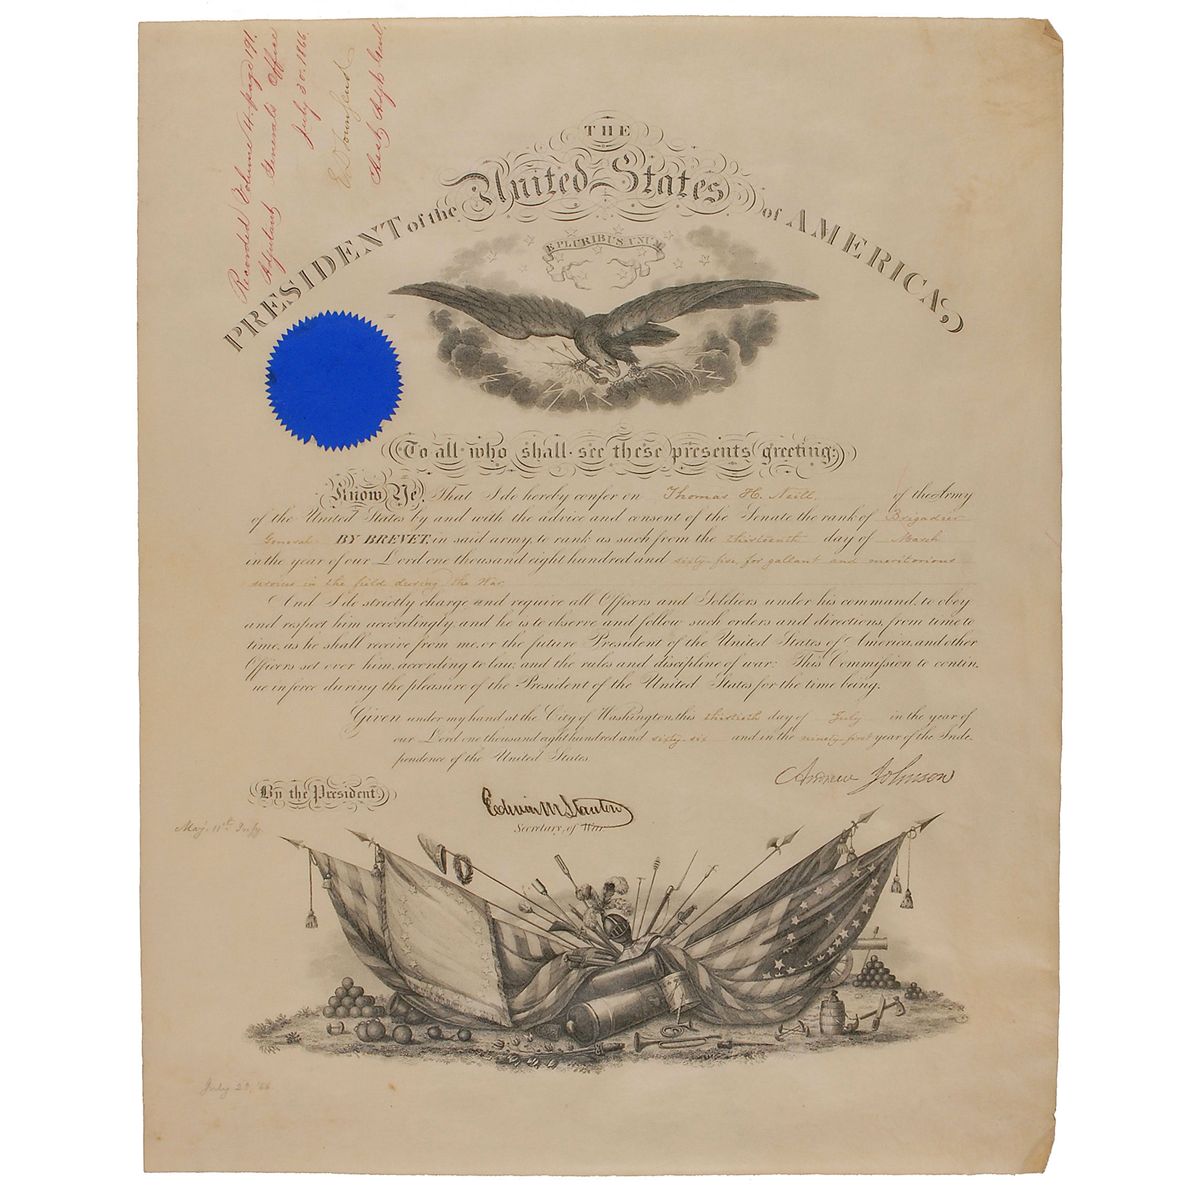 Recorded Volume 11. page 191.
Adjutant General's Office
July 30. 1866.
E. D. Townsend
Asst. Adjt. Genl.
THE
PRESIDENT of the United States of AMERICA,
E PLURIBUS UNUM
To all who shall see these presents greeting:
Know Ye, That I do hereby confer on Thomas H. Neill, of the Army
of the United States by and with the advice and consent of the Senate the rank of Brigadier
General BY BREVET, in said army to rank as such from the thirteenth day of March
in the year of our Lord one thousand eight hundred and sixty-five, for gallant and meritorious
services in the field during the War.
And I do strictly charge and require all Officers and Soldiers under his command, to obey
and respect him accordingly, and he is to observe and follow such orders and directions, from time to
time, as he shall receive from me, or the future President of the United States of America, and other
Officers set over him, according to law, and the rules and discipline of war: This Commission to contin-
ue in force during the pleasure of the President of the United States for the time being.
Given under my hand at the City of Washington, this thirtieth day of July in the year of
our Lord one thousand eight hundred and sixty-six and in the ninety-first year of the Inde-
pendence of the United States.
Andrew Johnson
By the President:
Edwin M Stanton
Secretary of War
Maj. 11th Infy.
July 28, '66